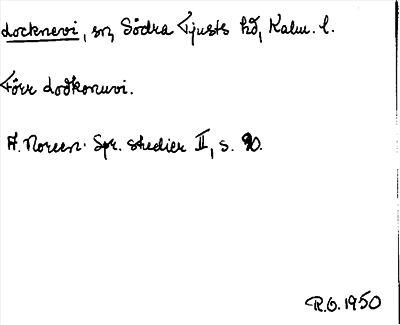 Locknevi, sn, Södra Tjusts hd, Kalm. l.
Förr Lodkonuvi.
A. Noreen. Spr. studier II, s. 90.
R.O. 1950